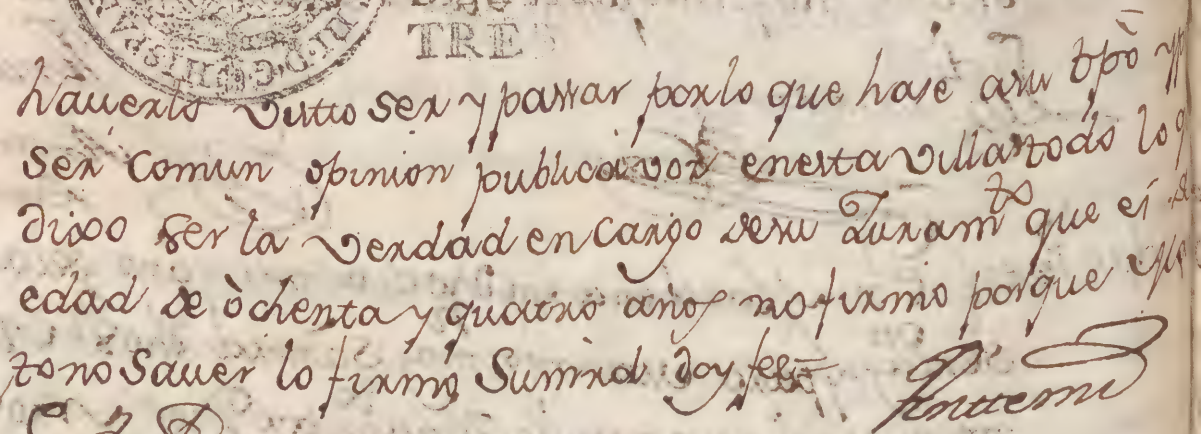 TRES
hauerlo visto ser y passar por lo que hase asu tpò y p
ser comun opinion publica voz en esta villa todo lo q
dixo ser la verdad en cargo desu Juram.to que es de
edad de òchenta y quatro años no firmo porque
to no sauer lo firmo Sumrd doy fee
Anttemi